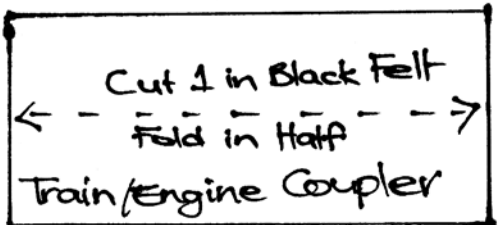 Cut 1 in Black Felt
Fold in Half
Train/Engine Coupler